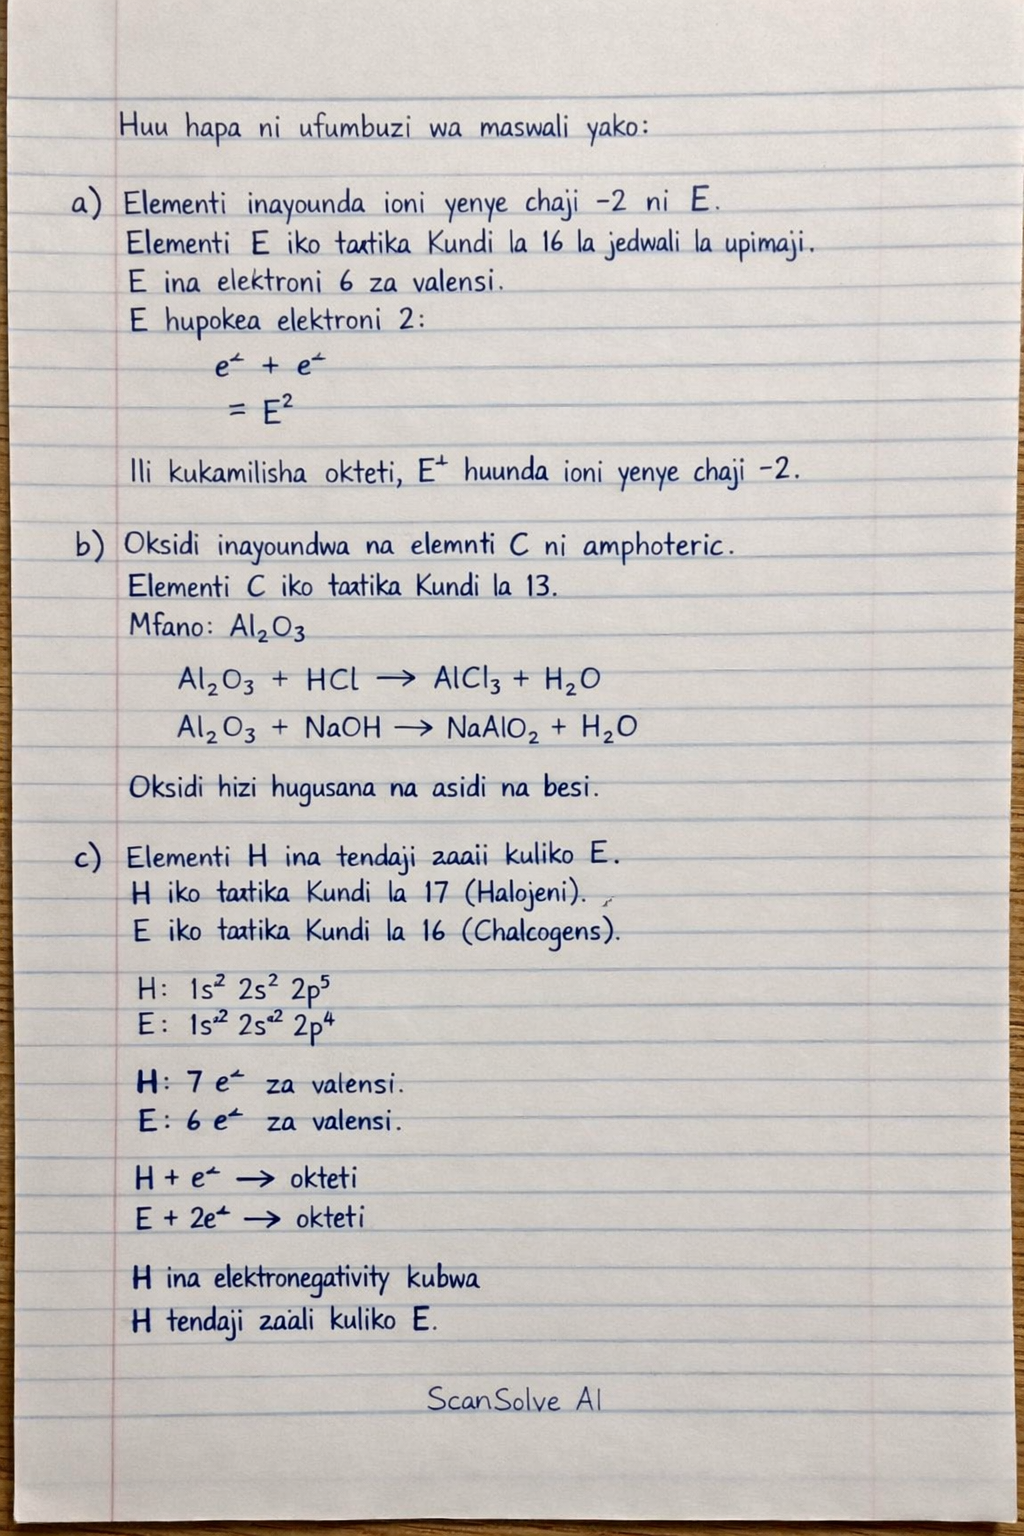 Huu hapa ni ufumbuzi wa maswali yako:
a) Elementi inayounda ioni yenye chaji -2 ni E.
Elementi E iko Kundi la 16 la jedwali la upimaji.
E ina elektroni 6 za valensi.
E hupokea elektroni 2:
e + e
= E²
Ili kukamilisha okteti, E⁺ huunda ioni yenye chaji -2.
b) Oksidi inayoundwa na elemnti C ni amphoteric.
Elementi C iko Kundi la 13.
Mfano: Al₂O₃
Al₂O₃ + HCl → AlCl₃ + H₂O
Al₂O₃ + NaOH → NaAlO₂ + H₂O
Oksidi hizi hugusana na asidi na besi.
c) Elementi H ina tendaji zaaii kuliko E.
H iko Kundi la 17 (Halojeni).
E iko Kundi la 16 (Chalcogens).
H: 1s² 2s² 2p⁵
E: 1s² 2s² 2p⁴
H: 7 e za valensi.
E: 6 e za valensi.
H + e → okteti
E + 2e → okteti
H ina elektronegativity kubwa
H tendaji zaali kuliko E.
ScanSolve AI